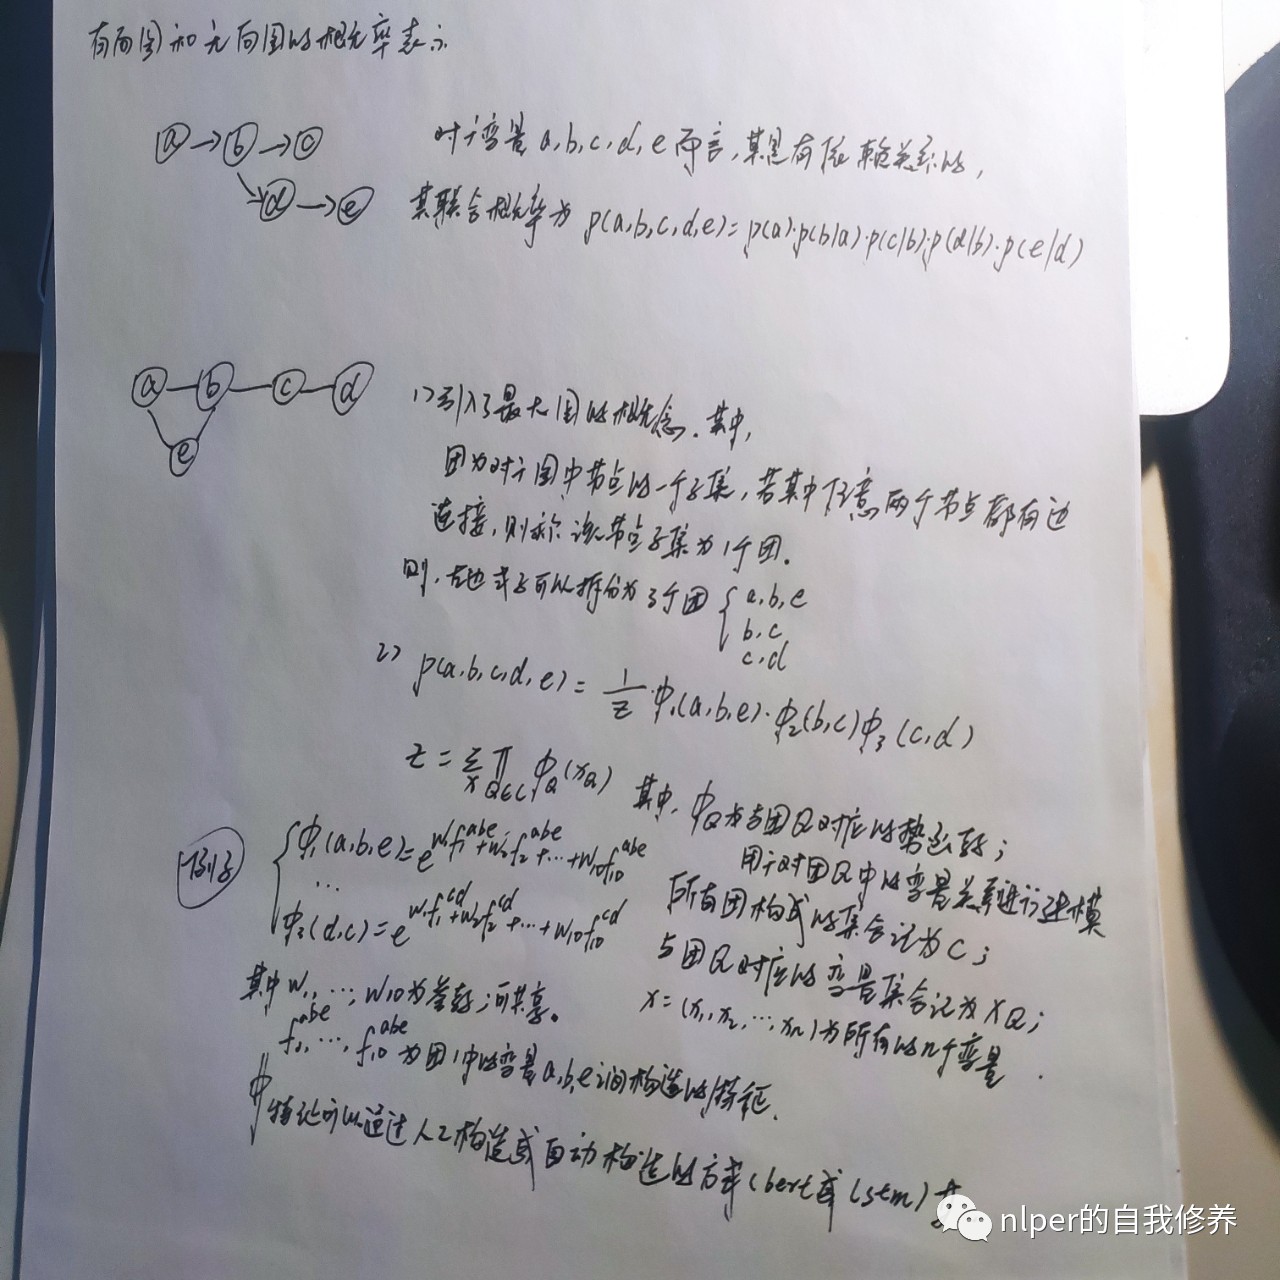 有向图和无向图的概率表示
a → b → c
d → e
对于变量a,b,c,d,e而言,其是有依赖关系的,
其联合概率为 p(a,b,c,d,e)=p(a)·p(b|a)·p(c|b)·p(d|b)·p(e|d)
a b c d
e
1)引入了最大团的概念.其中,
团为对于图中节点的一个子集,若其中任意两个节点都有边
连接,则称该节点子集为1个团.
则,左边 可以拆分为3个团 { a,b,e
b,c
c,d
2) p(a,b,c,d,e) = 1/Z · φ₁(a,b,e)·φ₂(b,c)φ₃(c,d)
Z = Σ_x Π_{Q∈C} φ_Q(x_Q) 其中,φ_Q为与团Q对应的势函数;
用于对团Q中的变量关系进行建模
所有团构成的集合记为C;
与团Q对应的变量集合记为x_Q;
x=(x₁,x₂,…,xₙ)为所有的n个变量.
例子
φ₁(a,b,e)=e^{w₁f₁^{abe}+w₂f₂^{abe}+…+w₁₀f₁₀^{abe}}
…
φ₃(d,c)=e^{w₁f₁^{cd}+w₂f₂^{cd}+…+w₁₀f₁₀^{cd}}
其中w₁,…,w₁₀为参数;可共享。
f₁^{abe},…,f₁₀^{abe} 为团1中的变量a,b,e之间构造的特征.
特征可以通过人工构造或自动构造的方式(bert或lstm)
nlper的自我修养